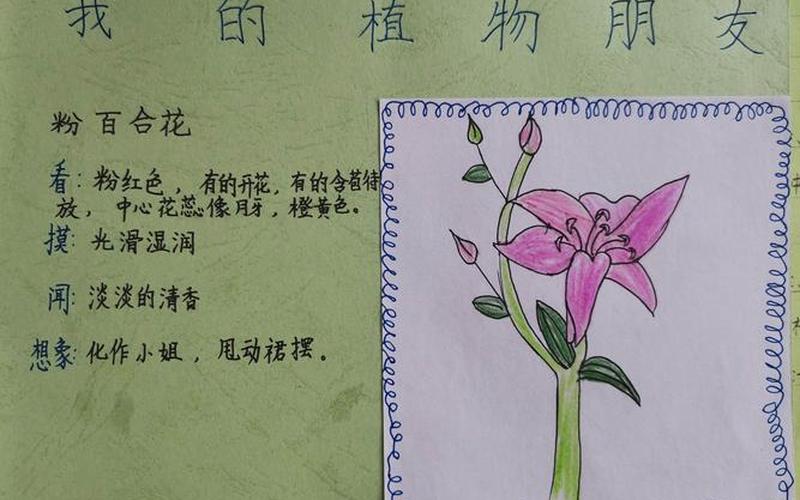 我的植物朋友
粉百合花
看：粉红色，有的开花，有的含苞待
放，中心花蕊像月牙，橙黄色。
摸：光滑湿润
闻：淡淡的清香
想象：化作小姐，甩动裙摆。